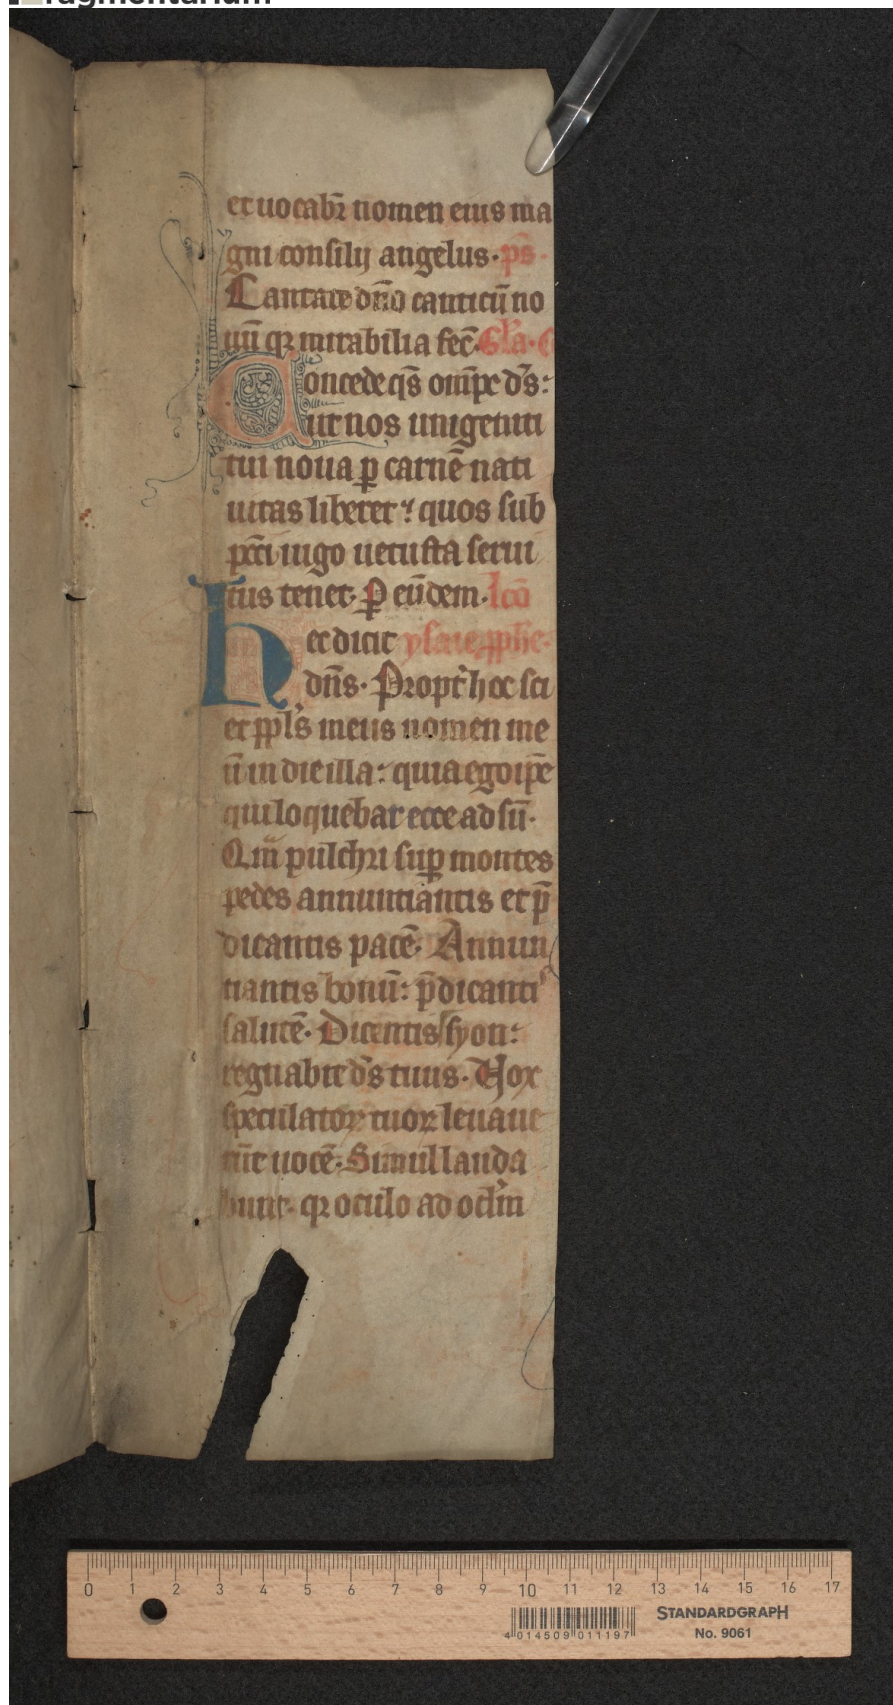 fragmentarium
et uocabr̄ nomen eius ma
gni consilij angelus · p̄s ·
Cantate dn̄o canticū no
uū qr mirabilia fec̄ · Gl̓a · C
Concede qs̄ om̄pc̄ d̓s :
ut nos unigeniti
tui noua ꝑ carnē nati
uitas liberet : quos sub
pcc̄i iugo uetusta serui
tus tenet · P̱ eūdem · lcō
hec dicit ysaie ꝓphe ·
dn̄s · Propt̓ hoc sci
et ppl̓s meus nomen me
ū in die illa : quia ego ip̄e
qui loquebar ecce ad sū ·
Qm̄ pulchri suꝑ montes
pedes annuntiantis et p̄
dicantis pacē · Annun
tiantis bonū : p̄dicanti
salutē · Dicentis syon :
regnabit d̓s tuus · Vox
speculatoꝝ tuoꝝ leuaue
rūt uocē · Simul lauda
bunt · qr oculo ad ocl̓m
0 1 2 3 4 5 6 7 8 9 10 11 12 13 14 15 16 17
STANDARDGRAPH
No. 9061
4 014509 011197